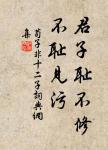 君子耻不修
不耻見污
荀子非十二子詞典網
集